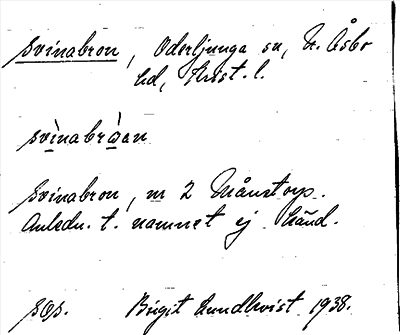 Svinabron, Oderljunga sn, N. Åsbo
hd, Krist. l.
svìnabrò̤an
Svinabron, nr 2 Månstorp.
Anledn. t. namnet ej känd.
sQs. Birgit Lundkvist 1938.